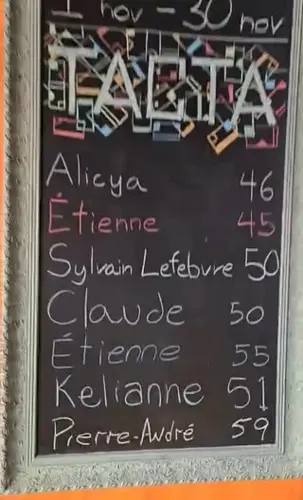 1 nov - 30 nov
TAKTA
Alicya 46
Étienne 45
Sylvain Lefebvre 50
Claude 50
Étienne 55
Kelianne 51
Pierre-André 59